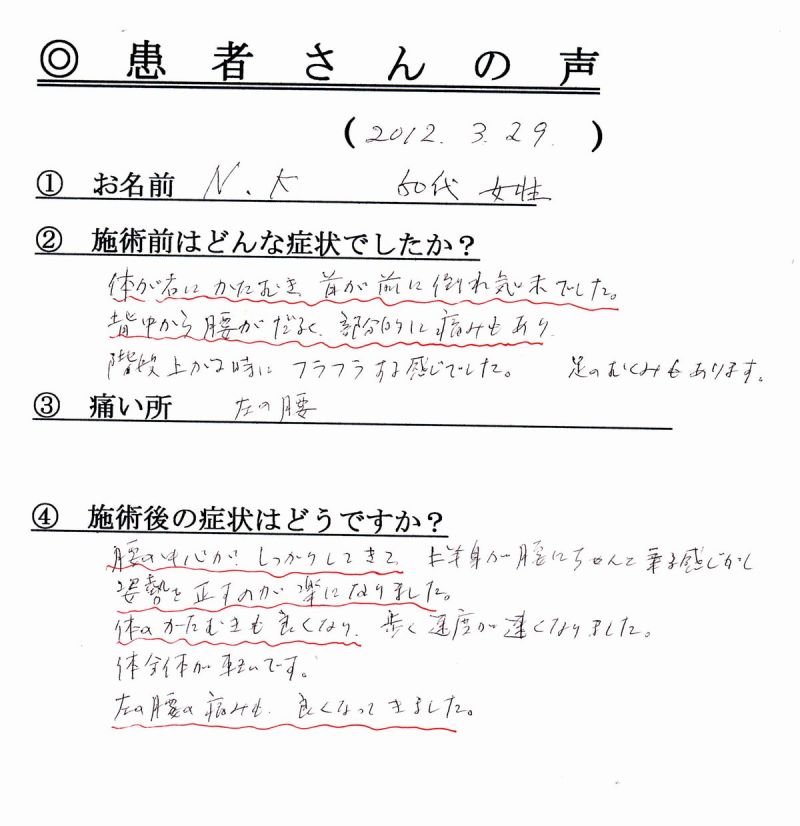 ◎ 患者さんの声
(2012. 3. 29.)
① お名前 N.K 60代 女性
② 施術前はどんな症状でしたか？
体が右にかたむき 首が前に倒れ気味でした。
背中から腰がだるく、部分的に痛みもあり
階段上がる時に フラフラする感じでした。 足のむくみもあります。
③ 痛い所 左の腰
④ 施術後の症状はどうですか？
腰の中心が しっかりしてきて、上半身が腰にちゃんと乗る感じがし
姿勢を正すのが楽になりました。
体のかたむきも良くなり、歩く速度が速くなりました。
体全体が軽いです。
左の腰の痛みも 良くなってきました。